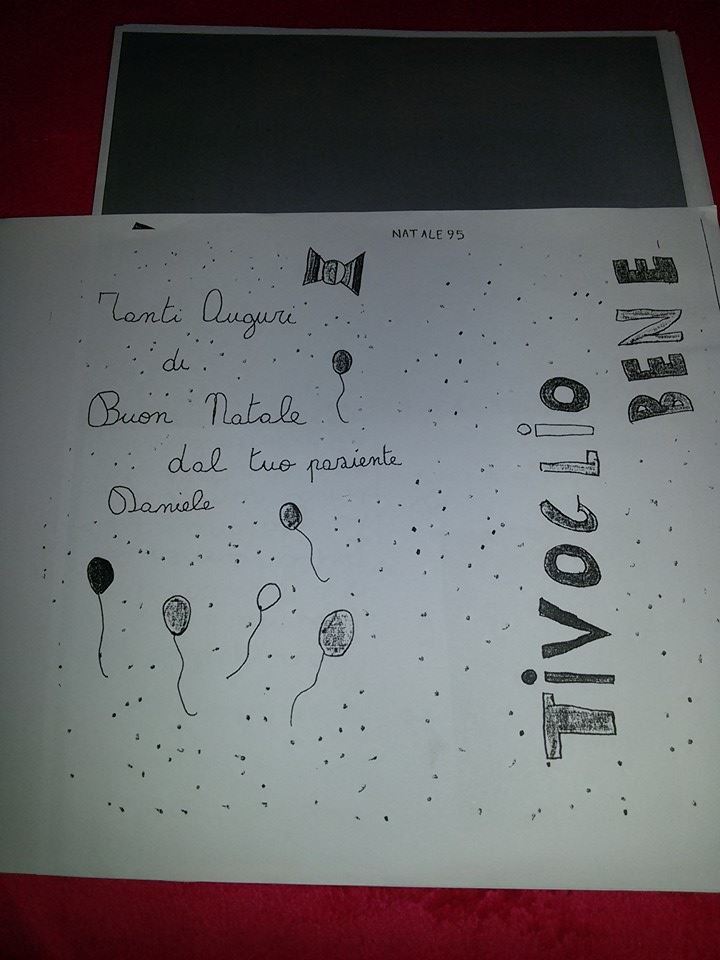 NATALE 95
Tanti Auguri
di
Buon Natale
dal tuo paziente
Daniele
TiVOGLiO
BENE